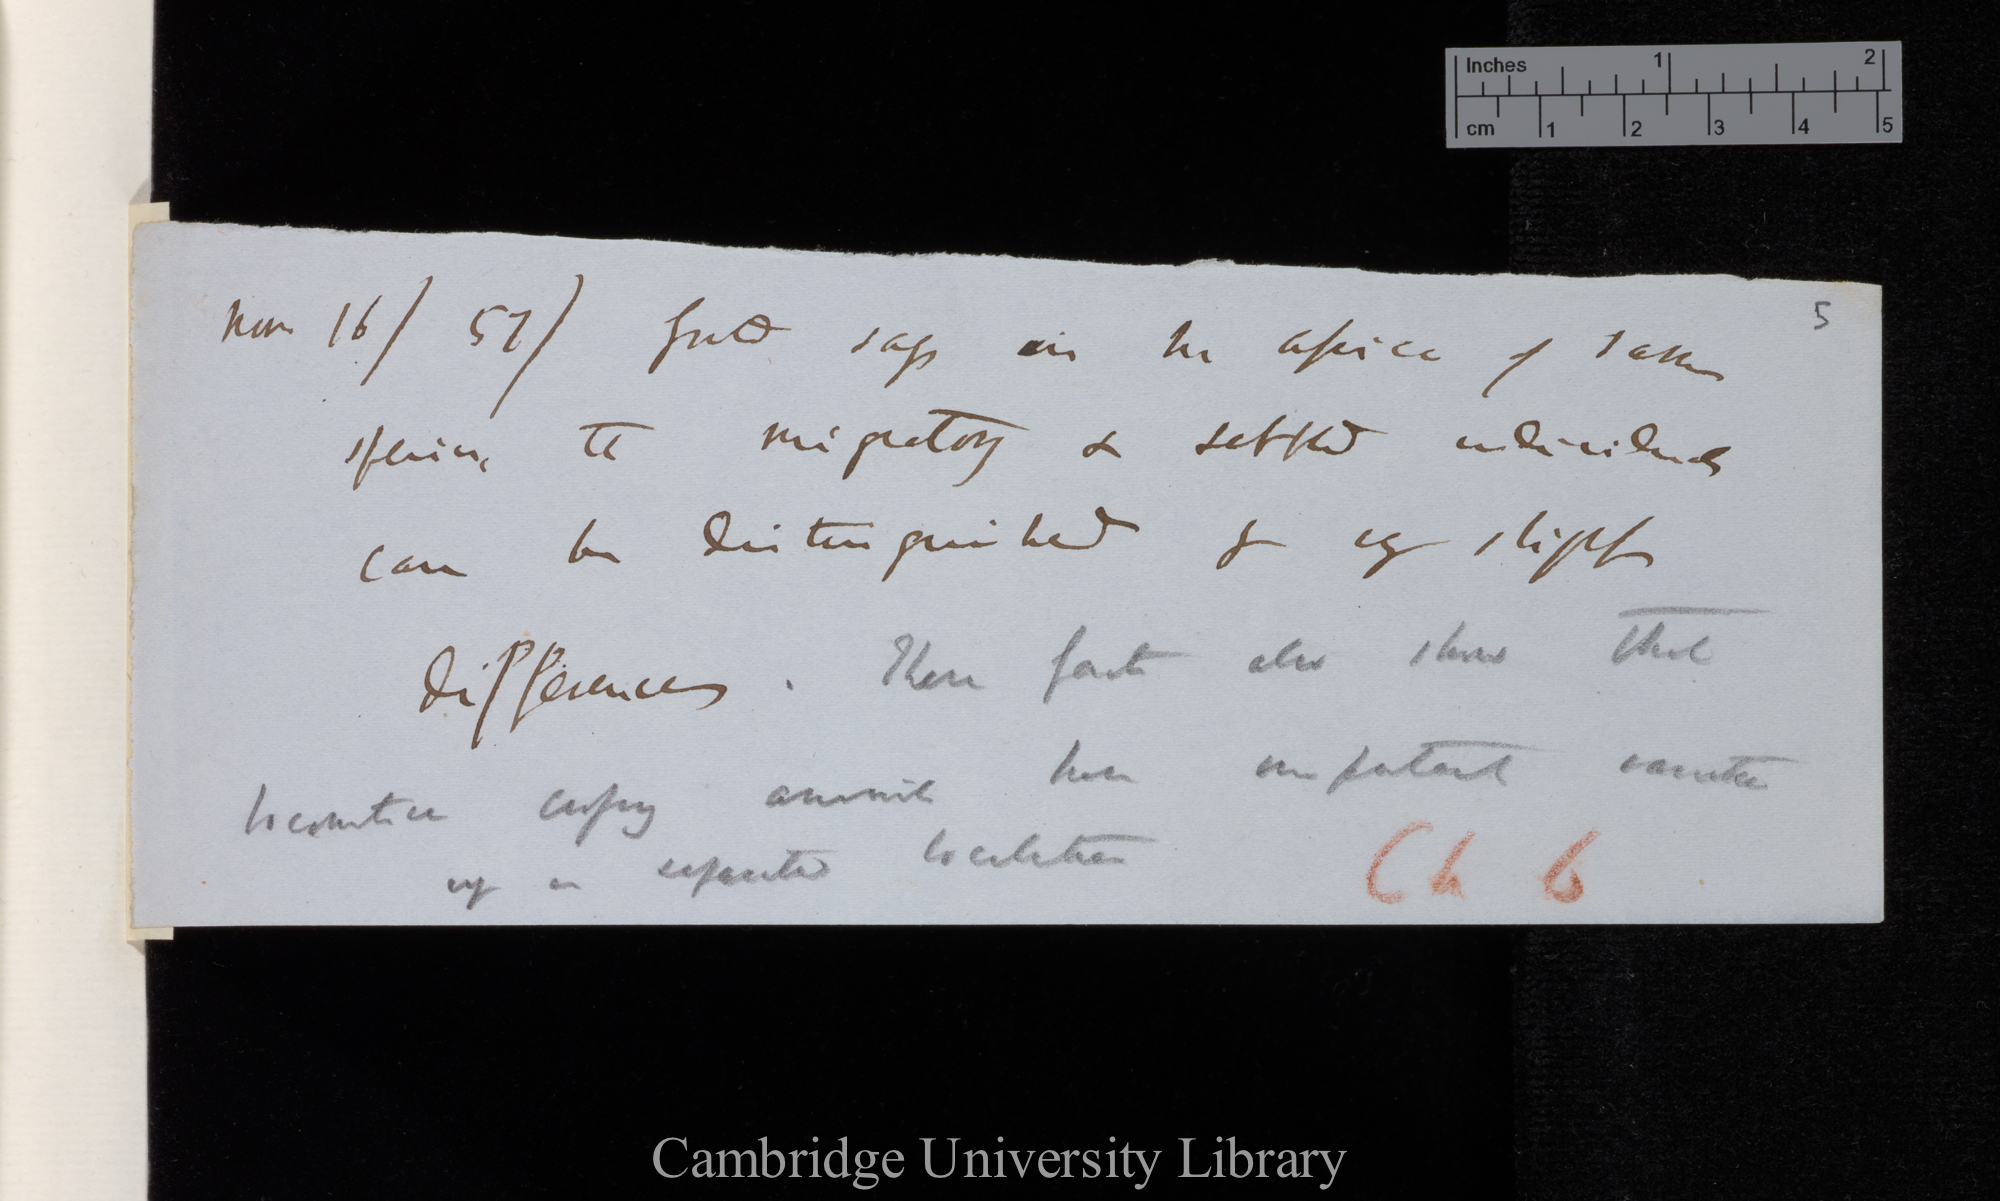 Inches 1 2
cm 1 2 3 4 5
5
Nov 16/ 57/ Gould says in S. Africa of same
species, the migratory & settled individuals
can be distinguished by very slight
differences. These facts also show that
locomotive animals have important varieties
only in separated localities
Ch 6
Cambridge University Library